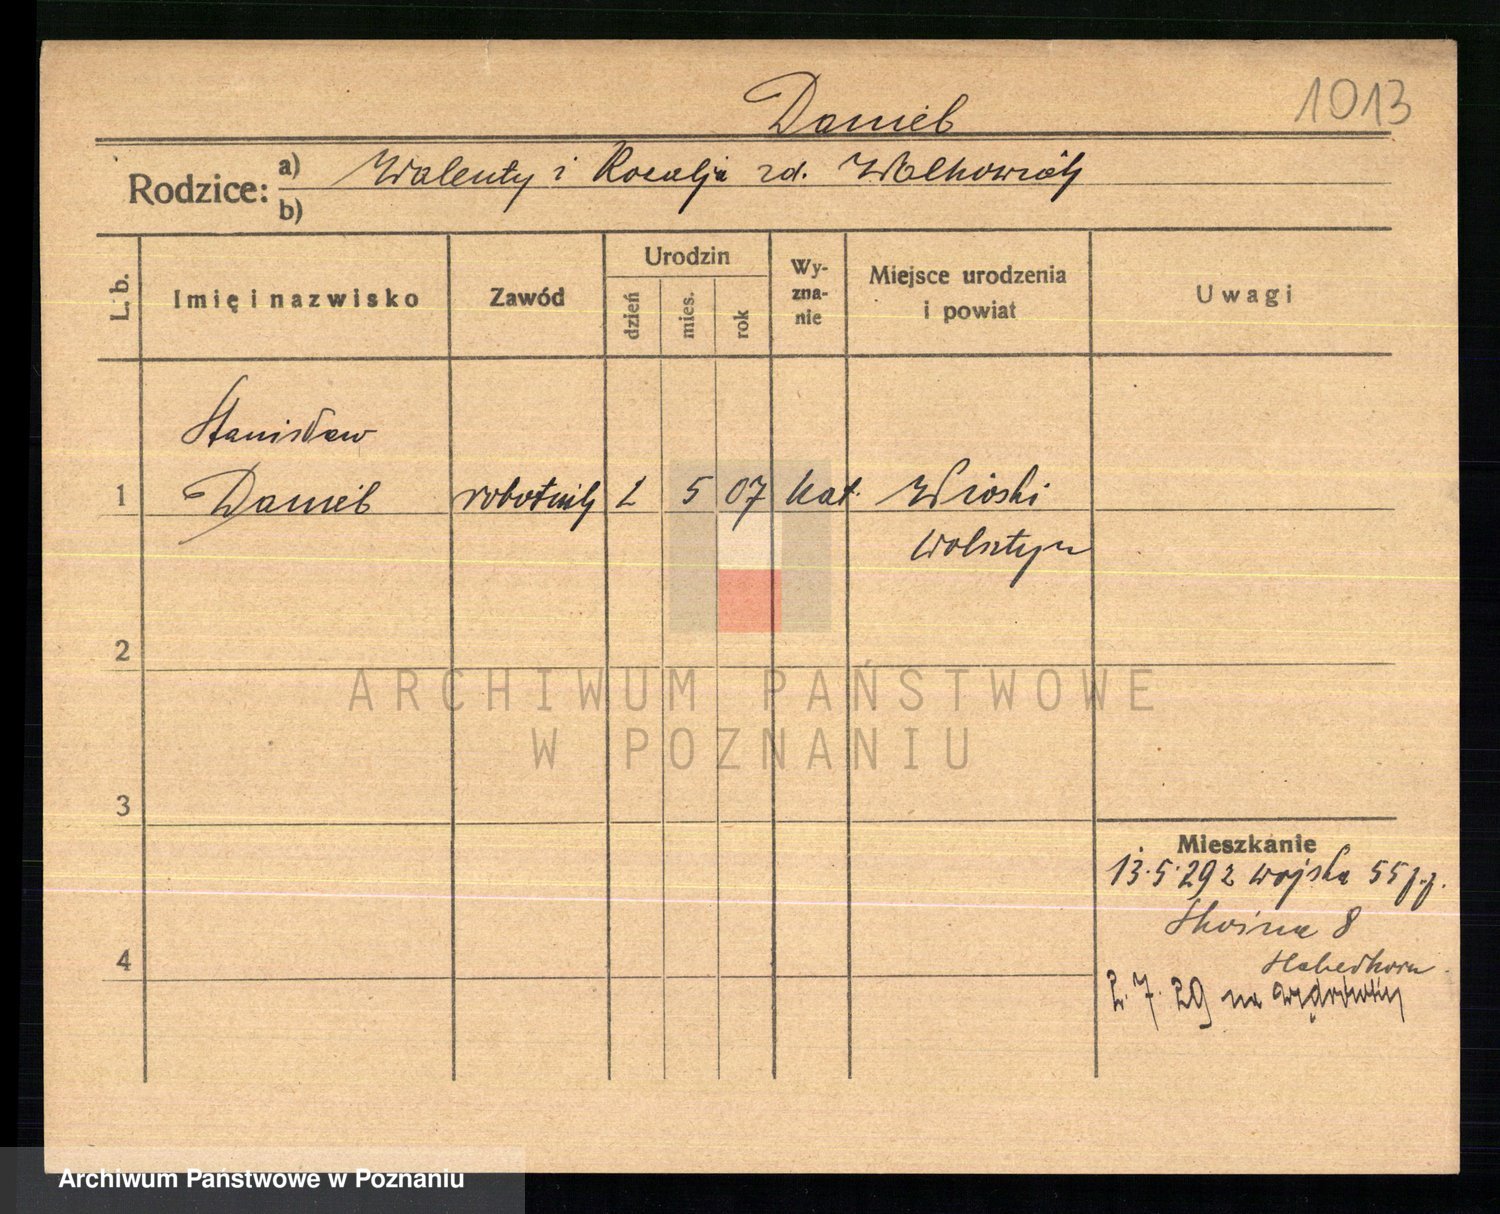 Daniel
1013
Rodzice: a) Walenty i Rozalja zd. Wolkowiak
b)
L. b.
Imię i nazwisko
Zawód
Urodzin
dzień
mies.
rok
Wy-
zna-
nie
Miejsce urodzenia
i powiat
Uwagi
Stanisław
1 Daniel robotnik 2 5 07 kat. Wioski
Wolsztyn
2
ARCHIWUM PAŃSTWOWE
W POZNANIU
3
Mieszkanie
13.5.29 z wojska 55 p.p.
8
4
Haberkorn
2.7.29 na wędrówkę
Archiwum Państwowe w Poznaniu